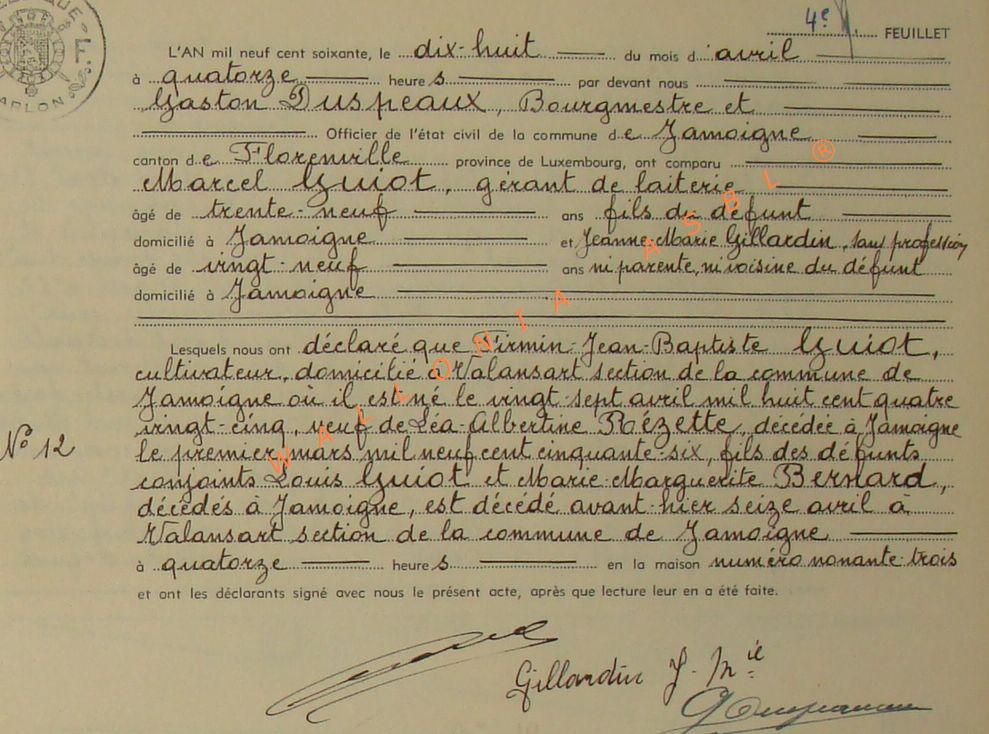 4e FEUILLET
L'AN mil neuf cent soixante, le dix-huit du mois d'avril
à quatorze heures par devant nous
Gaston Duspeaux, Bourgmestre et
Officier de l'état civil de la commune de Jamoigne
canton de Florenville province de Luxembourg, ont comparu
Marcel Guiot, gérant de laiterie,
âgé de trente-neuf ans fils du défunt
domicilié à Jamoigne et Jeanne-Marie Gillardin, sans profession
âgé de vingt-neuf ans ni parente, ni voisine du défunt
domicilié à Jamoigne
Lesquels nous ont déclaré que Firmin-Jean-Baptiste Guiot,
cultivateur, domicilié à Valansart section de la commune de
Jamoigne où il est né le vingt-sept avril mil huit cent quatre
vingt-cinq, veuf de Léa-Albertine Rézette, décédée à Jamoigne
N° 12
le premier mars mil neuf cent cinquante-six, fils des défunts
conjoints Louis Guiot et Marie-Marguerite Bernard,
décédés à Jamoigne, est décédé avant-hier seize avril à
Valansart section de la commune de Jamoigne
à quatorze heures en la maison numéro nonante-trois
et ont les déclarants signé avec nous le présent acte, après que lecture leur en a été faite.
Gillardin J. Mie
WALLONIA ASBL ®
ARLON